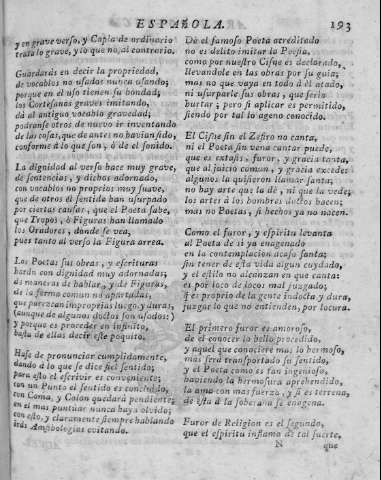 ESPAÑOLA. 193
y en grave verso, y Copla de ordinario
trata lo grave, y lo que no, al contrario.
Guardarás en decir la propriedad,
de vocablos no usados nunca usando;
porque en el uso tienen su bondad;
los Cortesanos graves imitando,
dá al antiguo vocablo gravedad;
podranse otros de nuevo ir inventando
de las cosas, que de antes no havian sido,
conforme á lo que son, ó de el sonido.
La dignidad al verso hace muy grave,
de sentencias, y dichos adornado,
con vocablos no proprios muy suave,
que de otros el sentido han usurpado
por ciertas causas, que el Poeta sabe,
que Tropos, ó Figuras han llamado
los Oradores, donde se vea,
pues tanto al verso la Figura arrea.
Los Poetas sus obras, y escrituras
harán con dignidad muy adornadas;
de maneras de hablar, y de Figuras,
de la forma comun no apartadas;
que parezcan improprias luego, y duras,
(aunque de algunos doctos son usadas:)
y porque es proceder en infinito,
basta de ellas decir este poquito.
Hase de pronunciar cumplidamente,
dando á lo que se dice fiel sentido;
para esto el escrivir es conveniente;
con un Punto el sentido es concluido,
con Coma, y Colon quedará pendiente;
en el mas puntuar nunca haya olvido;
con esto, y claramente siempre hablando
irás Amphibologias evitando.
Dó el famoso Poeta acreditado
no es delito imitar la Poesia,
como por nuestro Cisne es declarado,
llevandole en las obras por su guia;
mas no que vaya en todo á él atado,
ni usurparle sus obras, que seria
hurtar; pero si aplicar es permitido,
siendo por tal lo ageno conocido.
El Cisne sin el Zefiro no canta,
ni el Poeta sin vena cantar puede,
que es extasis, furor, y gracia tanta,
que al juicio comun, y gracia excede;
algunos la quisieron llamar santa;
no hay arte que la dé, ni que la vede;
los artes á los hombres doctos hacen;
mas no Poetas, si hechos ya no nacen.
Como el furor, y espiritu levanta
al Poeta de sí ya enagenado
en la contemplacion acaso santa;
sin tener de esta vida algun cuydado,
y el estilo no alcanzan en que canta:
es por loco de locos mal juzgado;
q̃ es proprio de la gente indocta y dura,
juzgar lo que no entienden, por locura.
El primero furor es amoroso,
de el conocer lo bello procedido,
y aquel que conociere mas lo hermoso,
mas será transportado su sentido,
y el Poeta como es tan ingenioso,
haviendo la hermosura aprehendido,
la ama con mas fuerza, y si es terrena,
de esta á la soberana se enagena.
Furor de Religion es el segundo,
que el espiritu inflama de tal suerte,
N que